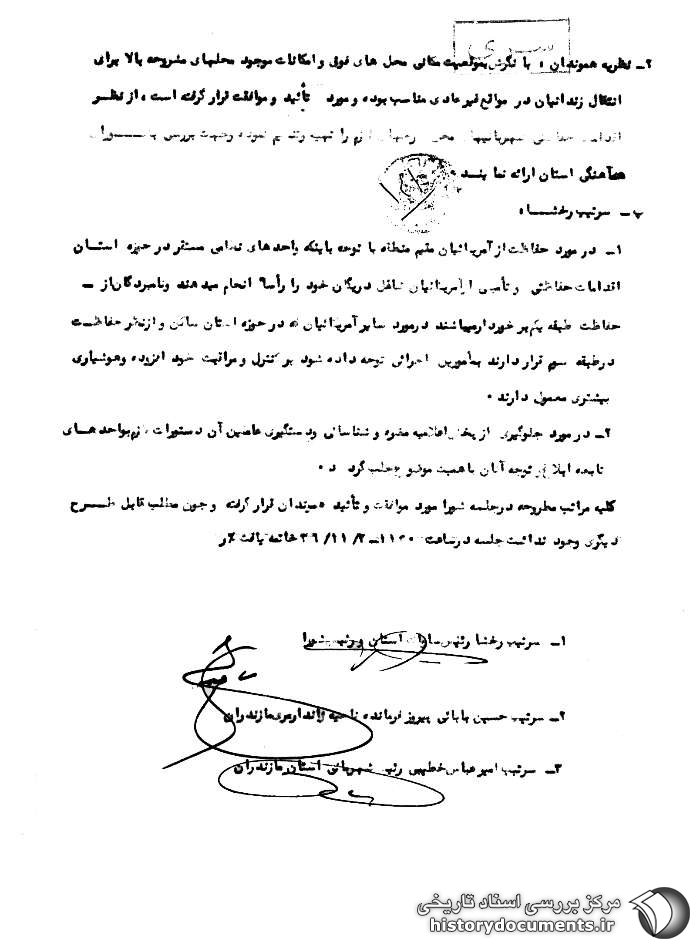 سری
۲ـ نظریه هموندان : با نگرش بموقعیت مکانی محل های فوق و امکانات موجود محلهای مشروحه بالا برای
انتقال زندانیان در مواقع غیر عادی مناسب بوده و مورد تأئید و موافقت قرار گرفته است ، از نظر
را تهیه و تقدیم نموده و جهت بررسی
هماهنگی استان ارائه نمایند .
پ ـ سرتیپ رخشا :
۱ـ در مورد حفاظت از آمریکائیان مقیم منطقه با توجه باینکه واحدهای نظامی مستقر در حوزه استان
اقدامات حفاظتی و تأمین آمریکائیان شاغل در یگان خود را رأساً انجام میدهند و نامبردگان از ـ
حفاظت طبقه یکم برخوردار میباشند در مورد سایر آمریکائیان که در حوزه استان ساکن و از نظر حفاظت
در طبقه سوم قرار دارند بمأمورین اجرائی توجه داده شود بر کنترل و مراقبت خود افزوده و هوشیاری
بیشتری معمول دارند .
۲ـ در مورد جلوگیری از پخش اعلامیه مضره و شناسائی و دستگیری عاملین آن دستورات لازم بواحدهای
تابعه ابلاغ و توجه آنان باهمیت موضوع جلب گردد .
کلیه مراتب مطروحه در جلسه شورا مورد موافقت و تأئید هموندان قرار گرفته و چون مطلب قابل طرح
دیگری وجود نداشت جلسه در ساعت ۳۶/۱۱/۲ خاتمه یافت
۱ـ سرتیپ رخشا رئیس استان و رئیس شورا
۲ـ سرتیپ حسین بابائی پیروز فرمانده ناحیه ژاندارمری مازندران
۳ـ سرتیپ امیر عباس خطیبی رئیس شهربانی استان مازندران
مرکز بررسی اسناد تاریخی
historydocuments.ir